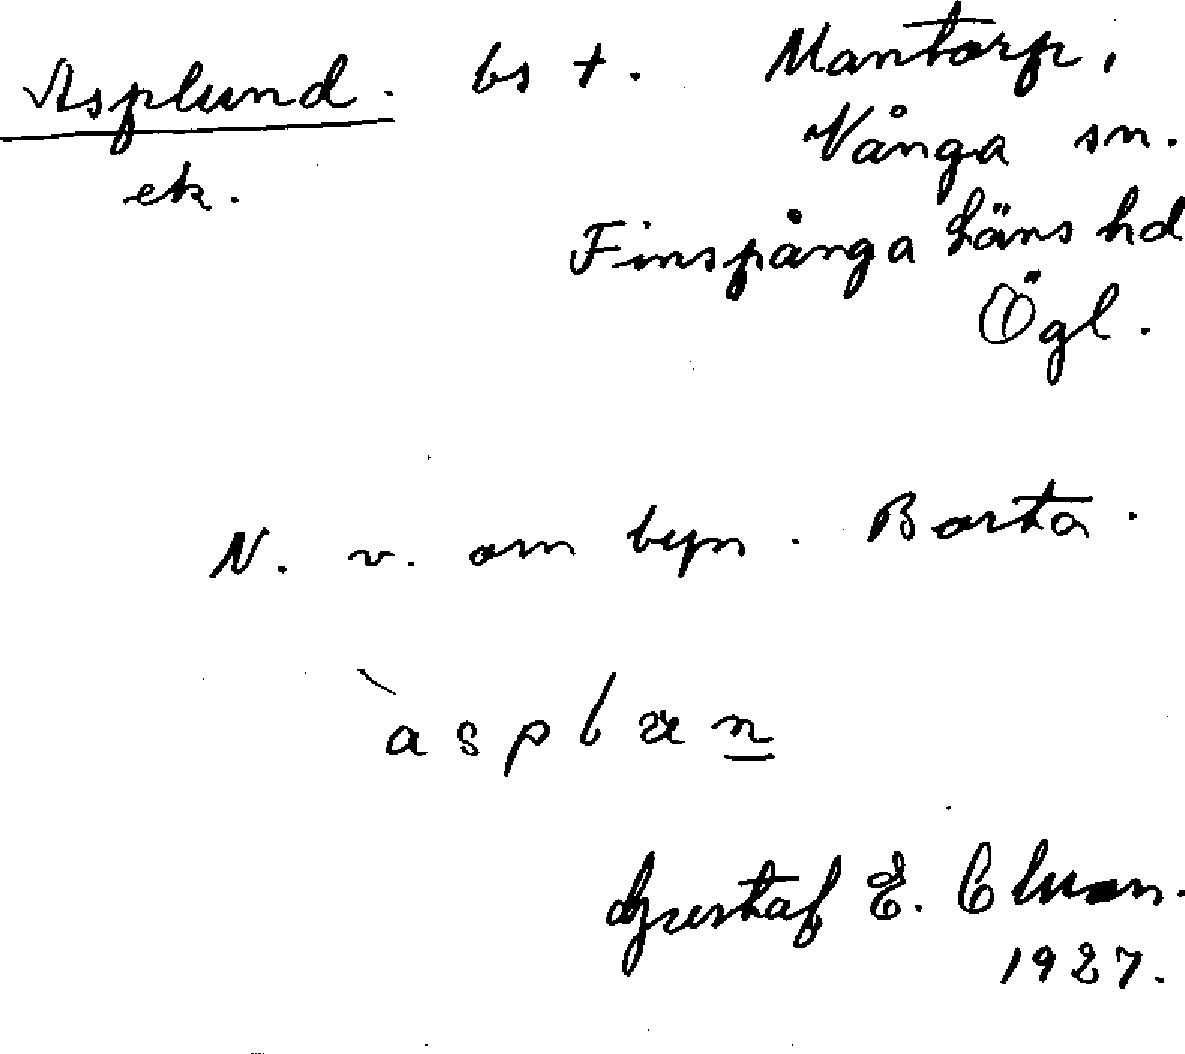 Asplund. bs †. Mantorp,
Vånga sn.
ek.
Finspånga läns hd
Ögl.
N. v. om byn. Borta.
Gustaf E.
1927.